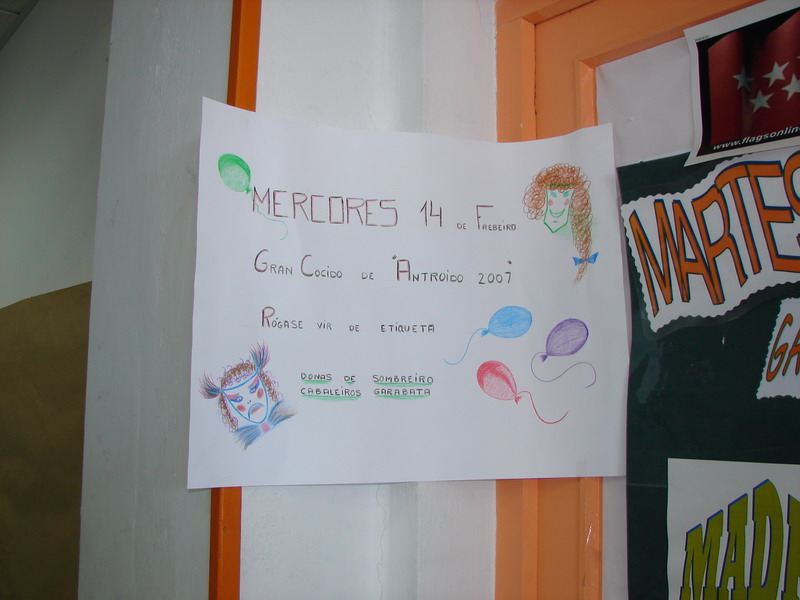 MERCORES 14 DE FREBEIRO
GRAN COCIDO DE "ANTROIDO 2007"
RÓGASE VIR DE ETIQUETA
DONAS DE SOMBREIRO
CABALEIROS GARABATA
www.flagsonlin
MARTES
GA
MAD